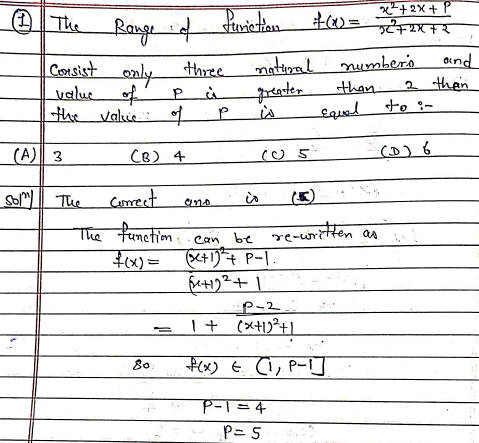 ① The Range of function f(x) = x²+2x+P / x²+2x+2
Consist only three natural numbers and
value of P is greater than 2 then
the value of P is equal to :-
(A) 3 (B) 4 (C) 5 (D) 6
Solⁿ The Correct ans is (5)
The function can be re-written as
f(x) = (x+1)²+ P-1. / (x+1)²+1
= 1 + P-2 / (x+1)²+1
So f(x) ∈ (1, P-1]
P-1 = 4
P= 5